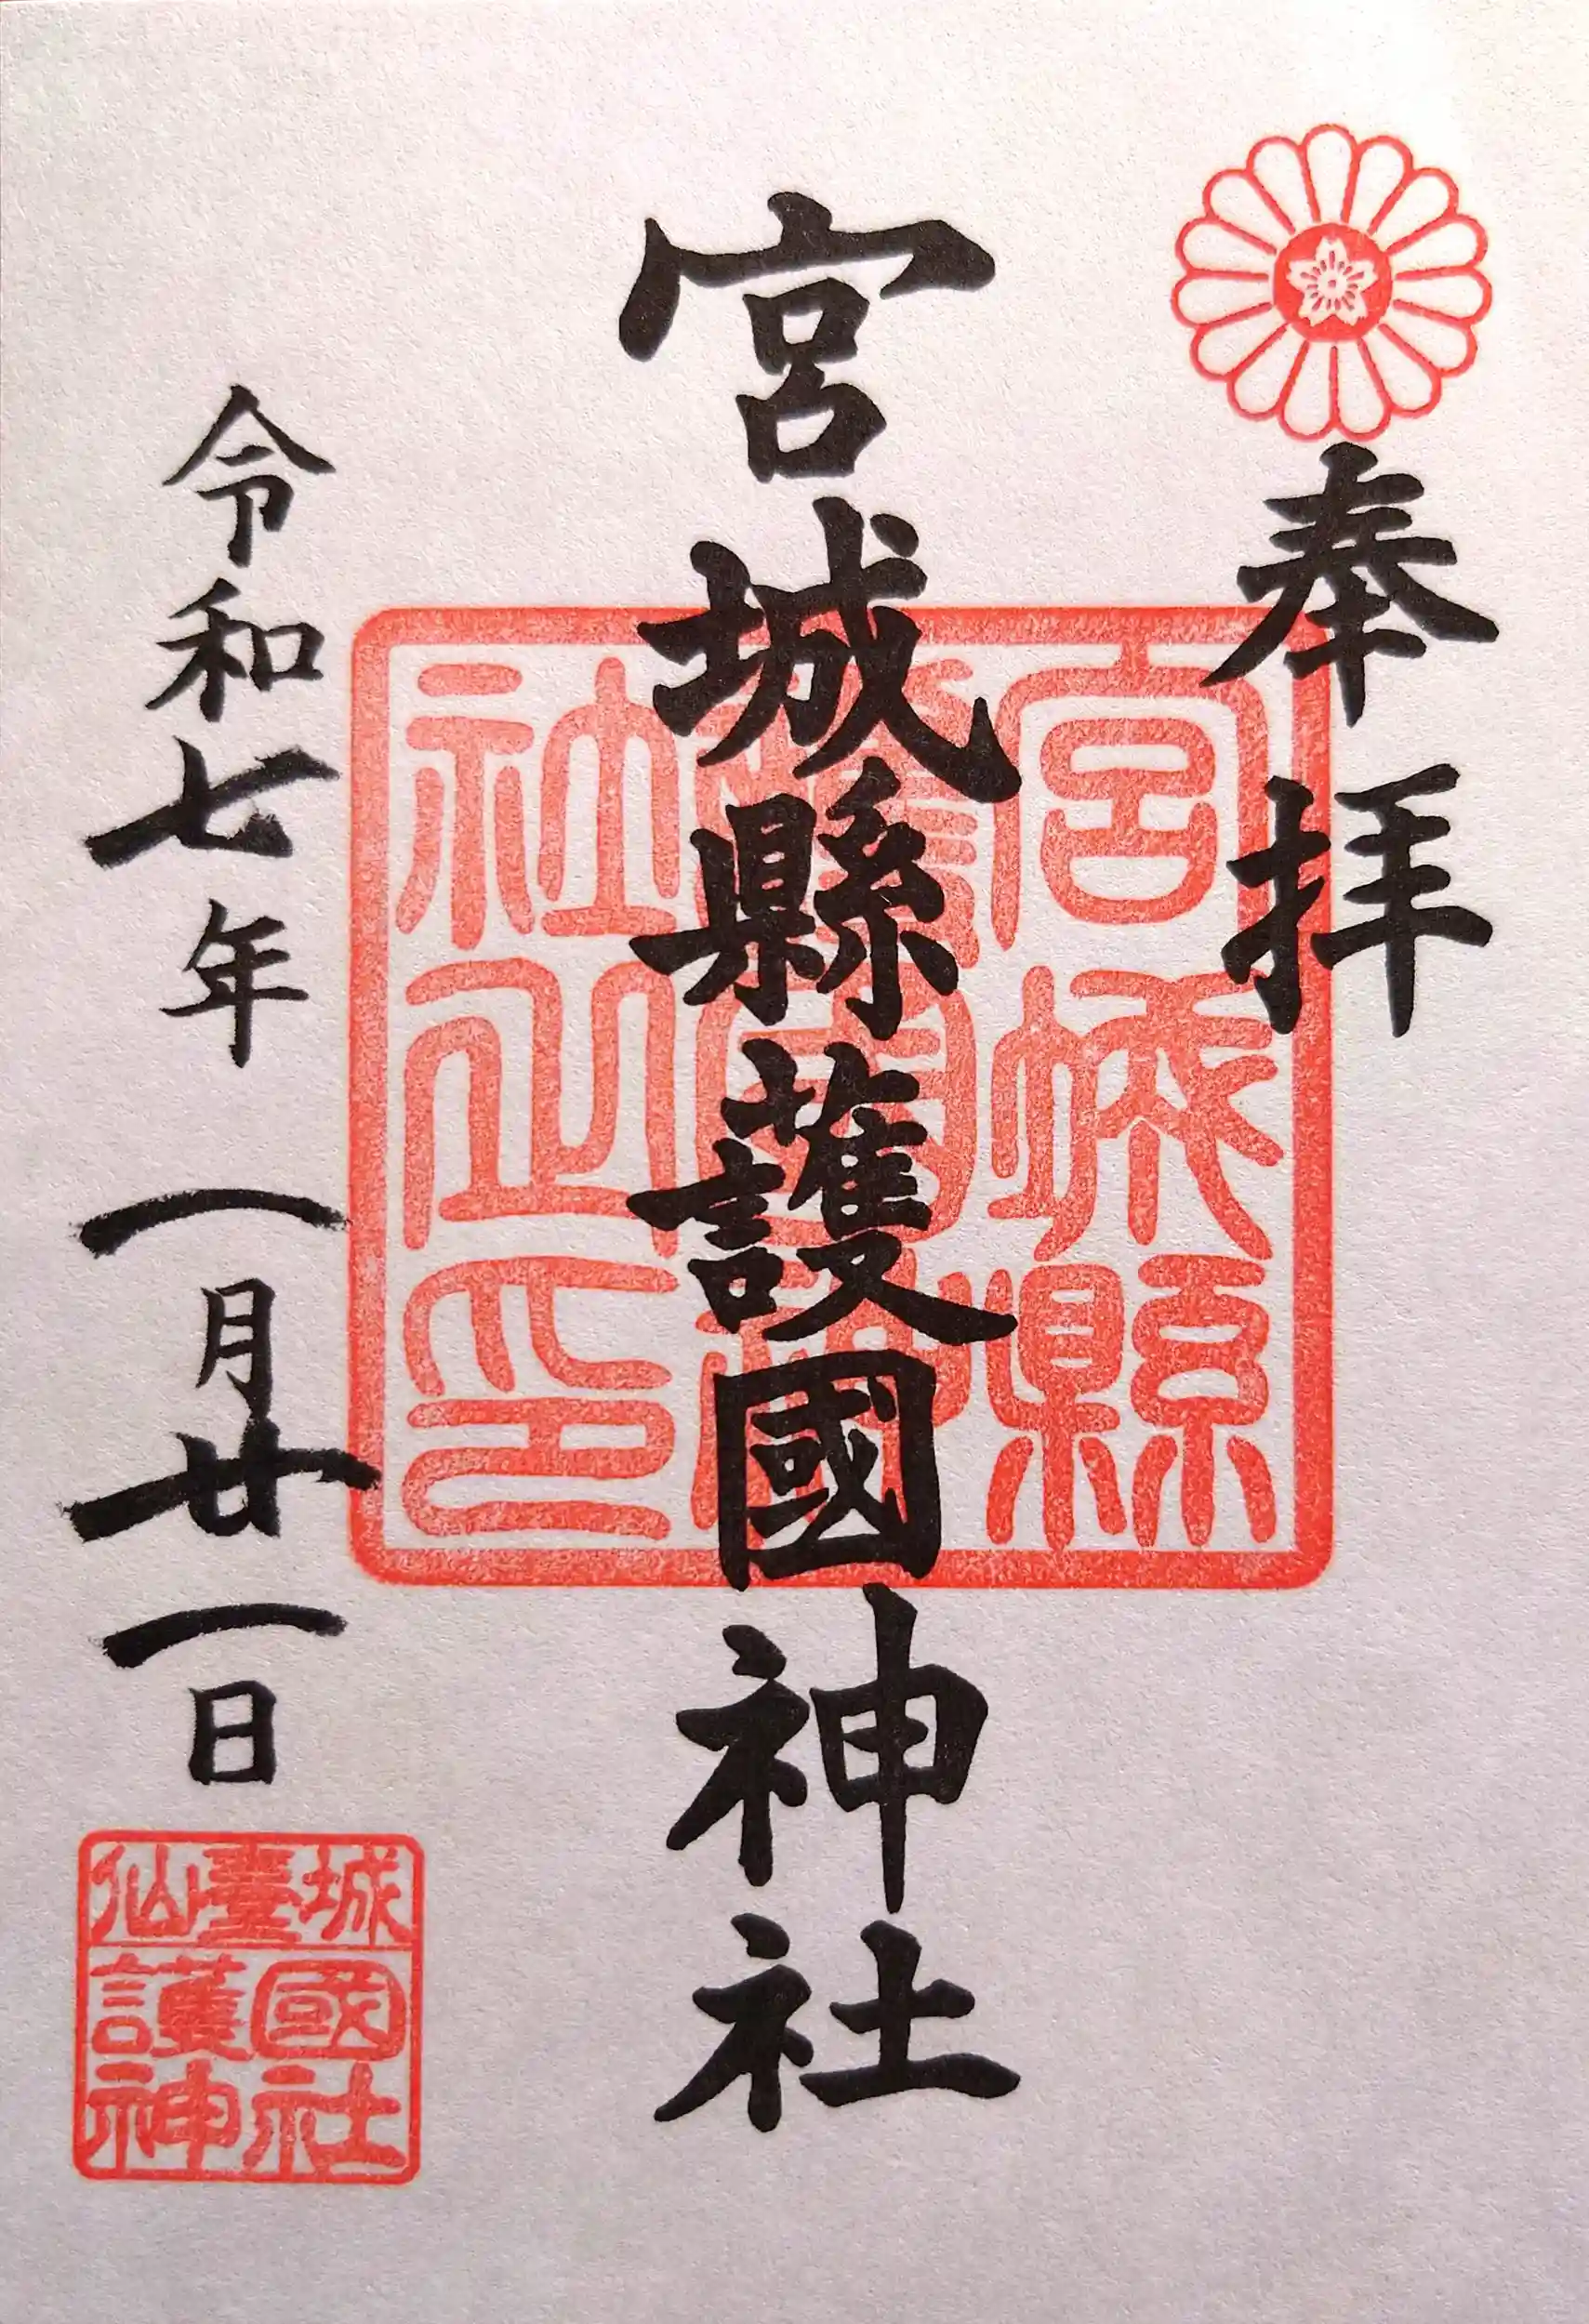 奉拝
宮城縣護國神社
宮城縣
護國神
社之印
令和七年一月廿一日
仙臺城
護國
神社